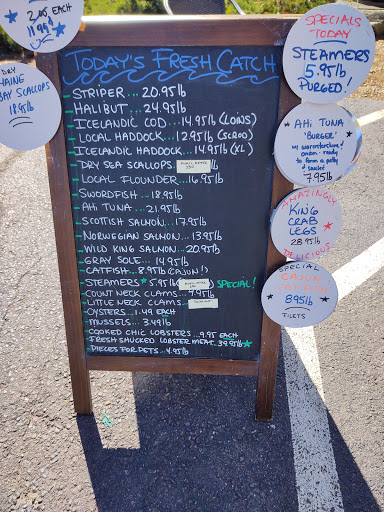 2.05 EACH
DRY
BAY SCALLOPS
18.95lb
TODAY'S FRESH CATCH
STRIPER... 20.95lb
HALIBUT... 24.95lb
ICELANDIC COD... 14.95lb (LOINS)
LOCAL HADDOCK... 12.95lb (SCROD)
ICELANDIC HADDOCK... 14.95lb (XL)
DRY SEA SCALLOPS
LOCAL FLOUNDER... 16.95lb
SWORDFISH... 18.95lb
AHI TUNA... 21.95lb
SCOTTISH SALMON... 17.95lb
NORWEGIAN SALMON... 13.95lb
WILD KING SALMON... 20.95lb
GRAY SOLE... 14.95lb
CATFISH... 8.95lb (CAJUN!)
STEAMERS* 5.95lb SPECIAL!
COUNT NECK CLAMS... 4.95lb
LITTLE NECK CLAMS
OYSTERS... 1.49 EACH
MUSSELS... 3.49lb
COOKED CHIC LOBSTERS... 9.95 EACH
FRESH SHUCKED LOBSTER MEAT. 39.95lb
PIECES FOR PETS... 4.95lb
SPECIALS
TODAY
STEAMERS
5.95lb
PURGED!
AHI TUNA
"BURGER"
w/ worcestershire &
onion - ready
to form a patty
&
7.95lb
AMAZINGLY
KING
CRAB
LEGS
28.95lb
DELICIOUS
SPECIAL
CAJUN
CATFISH
8.95lb
FILETS